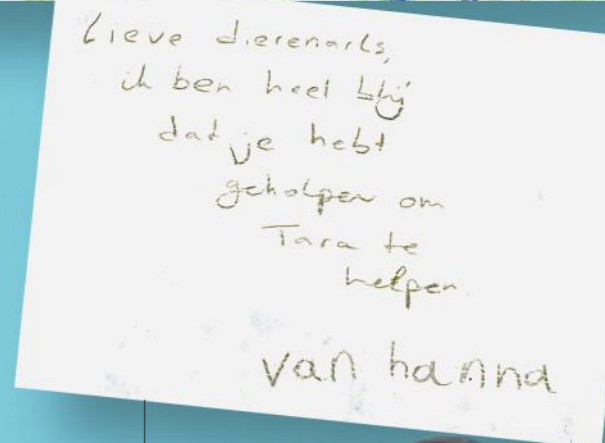 Lieve dierenarts,
ik ben heel blij
dat je hebt
geholpen om
Tara te
helpen.
van hanna